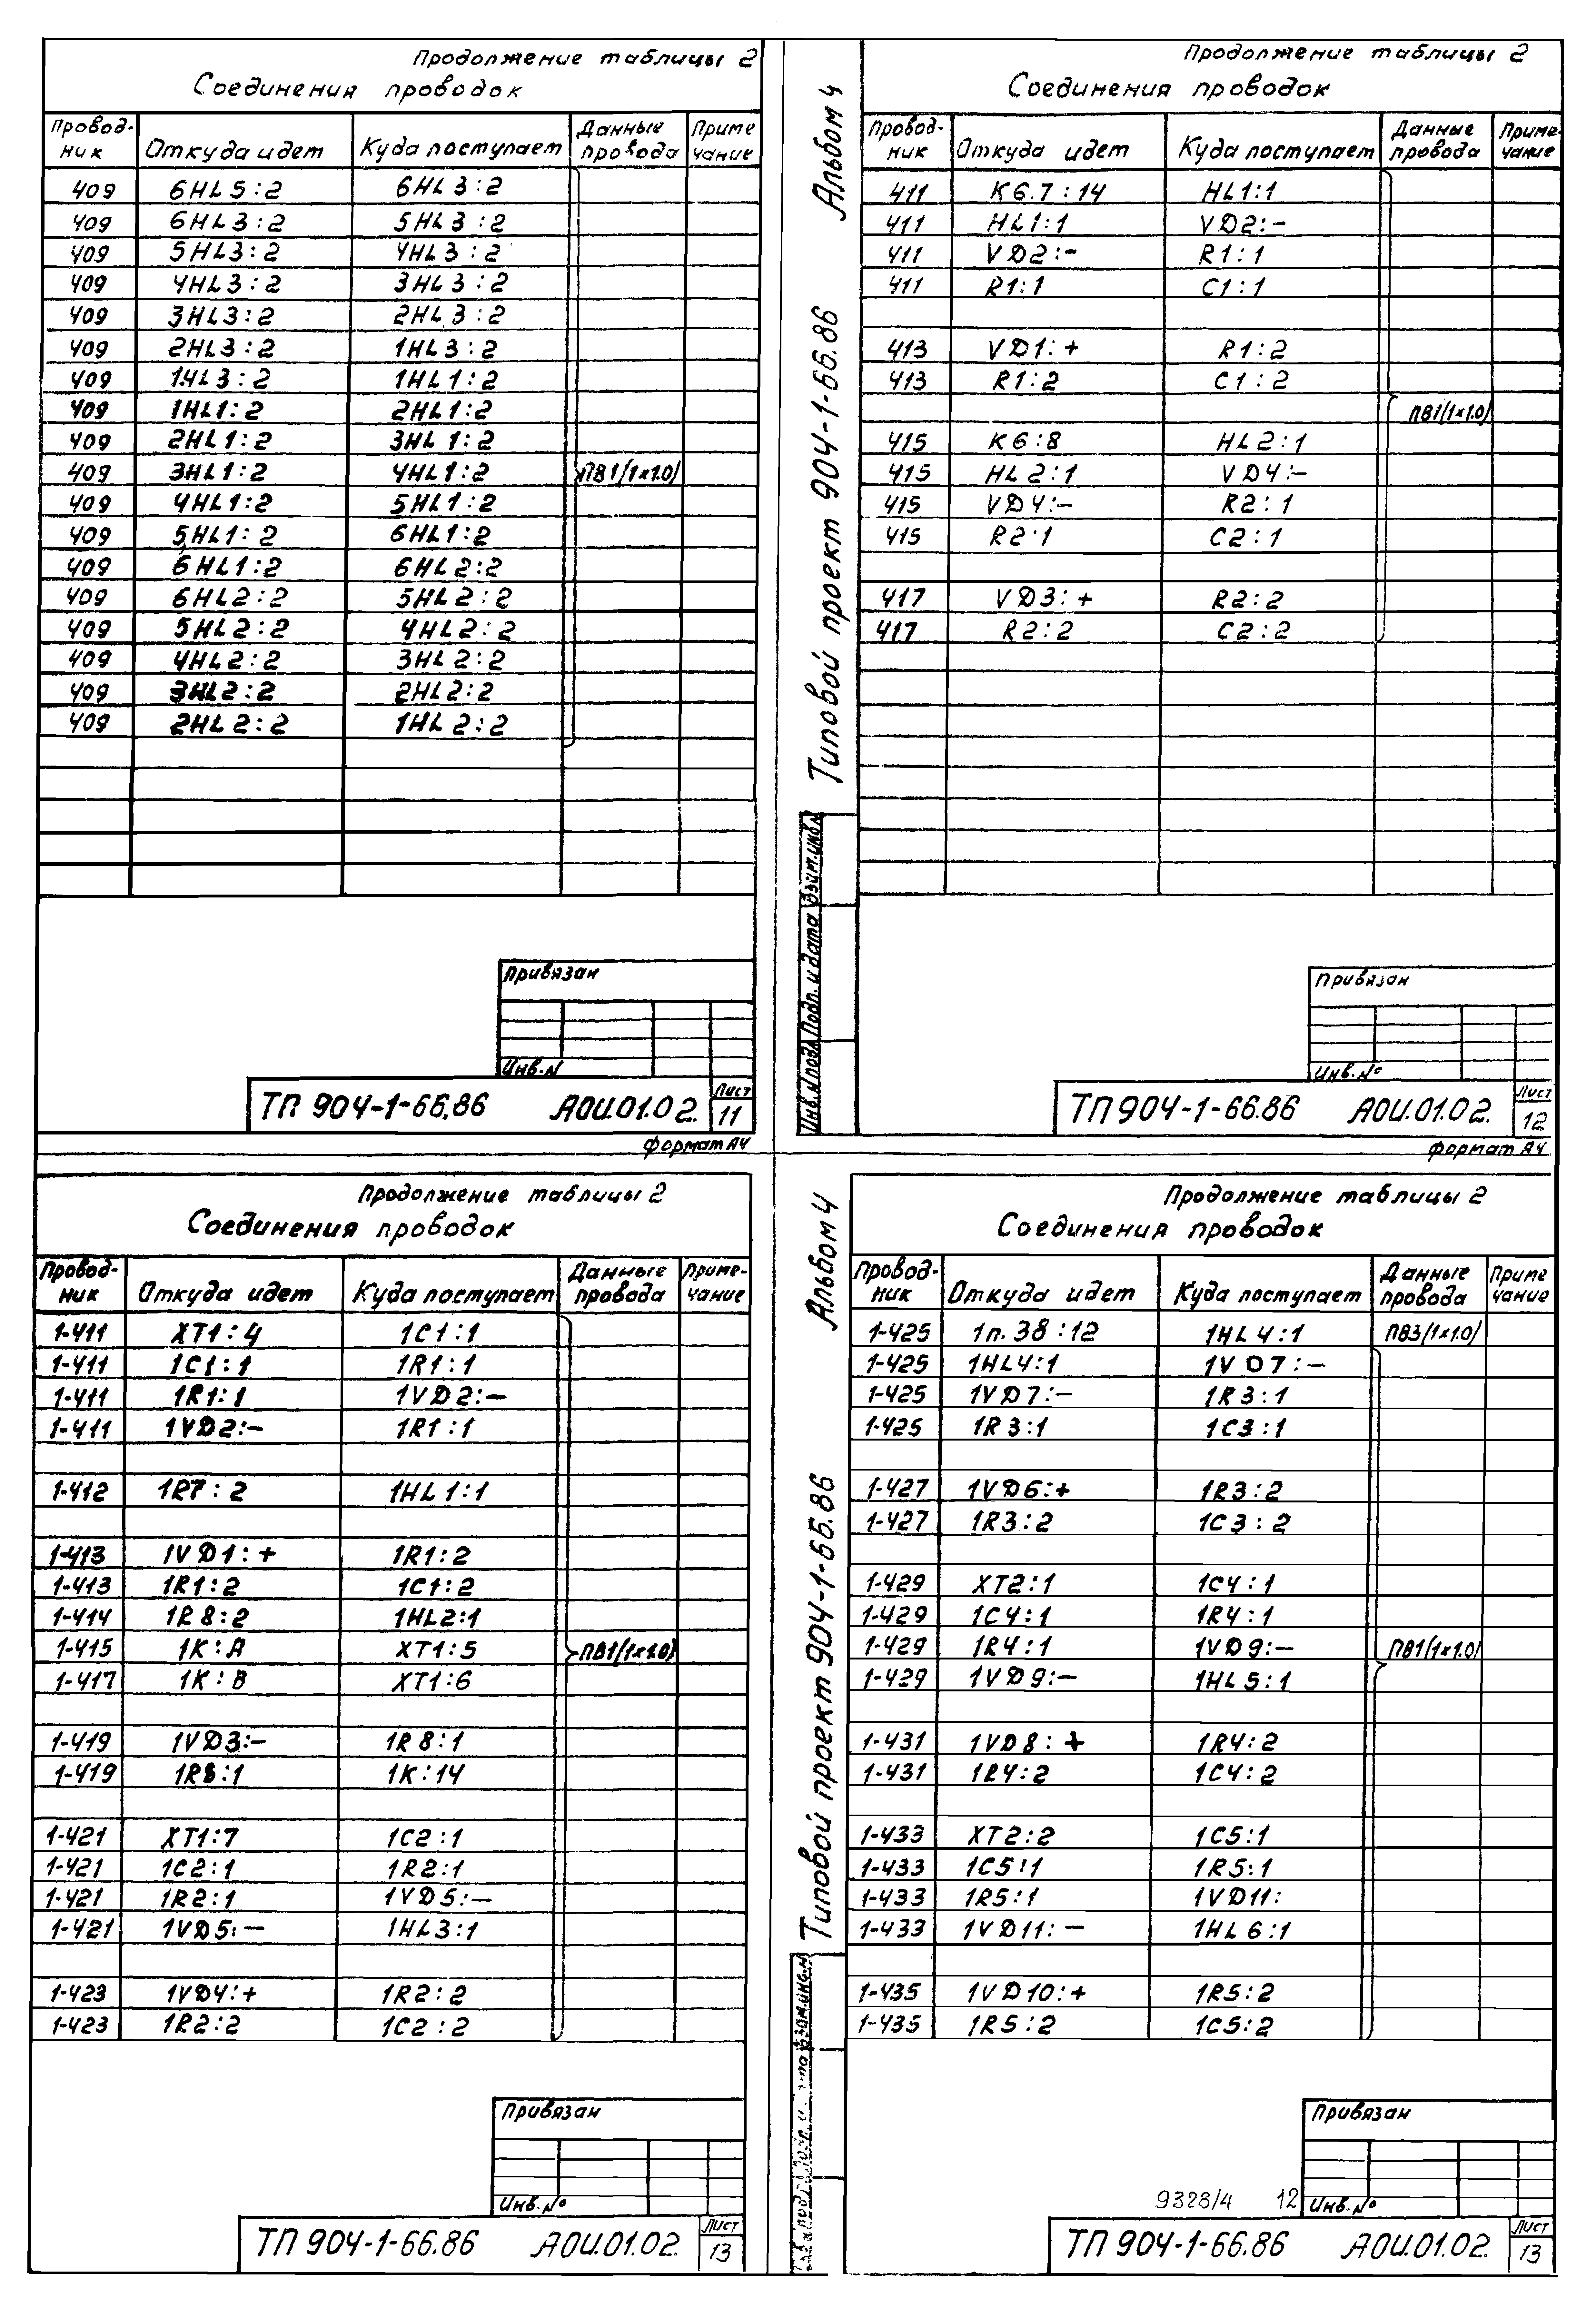 Продолжение таблицы 2
Соединения проводок
Провод-ник Откуда идет Куда поступает Данные провода Приме чание
409 6HL5:2 6HL3:2
409 6HL3:2 5HL3:2
409 5HL3:2 4HL3:2
409 4HL3:2 3HL3:2
409 3HL3:2 2HL3:2
409 2HL3:2 1HL3:2
409 1HL3:2 1HL1:2
409 1HL1:2 2HL1:2
409 2HL1:2 3HL1:2
409 3HL1:2 4HL1:2 ПВ1(1×1.0)
409 4HL1:2 5HL1:2
409 5HL1:2 6HL1:2
409 6HL1:2 6HL2:2
409 6HL2:2 5HL2:2
409 5HL2:2 4HL2:2
409 4HL2:2 3HL2:2
409 3HL2:2 2HL2:2
409 2HL2:2 1HL2:2
Привязан
Инв.N
ТП 904-1-66.86 АОИ.01.02. Лист 11
Формат А4
Альбом 4
Типовой проект 904-1-66.86
Инв.N подл. Подп. и дата Взам.инв.N
Продолжение таблицы 2
Соединения проводок
Провод-ник Откуда идет Куда поступает Данные провода Приме-чание
411 К6.7:14 HL1:1
411 HL1:1 VD2:-
411 VD2:- R1:1
411 R1:1 C1:1
413 VD1:+ R1:2
413 R1:2 C1:2
ПВ1(1×1.0)
415 К6:8 HL2:1
415 HL2:1 VD4:-
415 VD4:- R2:1
415 R2:1 C2:1
417 VD3:+ R2:2
417 R2:2 C2:2
Привязан
Инв.№
ТП 904-1-66.86 АОИ.01.02. Лист 12
Формат А4
Продолжение таблицы 2
Соединения проводок
Провод-ник Откуда идет Куда поступает Данные провода Приме-чание
1-411 XT1:4 1C1:1
1-411 1C1:1 1R1:1
1-411 1R1:1 1VD2:-
1-411 1VD2:- 1R1:1
1-412 1R7:2 1HL1:1
1-413 1VD1:+ 1R1:2
1-413 1R1:2 1C1:2
1-414 1R8:2 1HL2:1
1-415 1K:A XT1:5 ПВ1(1×1.0)
1-417 1K:B XT1:6
1-419 1VD3:- 1R8:1
1-419 1R8:1 1K:14
1-421 XT1:7 1C2:1
1-421 1C2:1 1R2:1
1-421 1R2:1 1VD5:-
1-421 1VD5:- 1HL3:1
1-423 1VD4:+ 1R2:2
1-423 1R2:2 1C2:2
Привязан
Инв.№
ТП 904-1-66.86 АОИ.01.02. Лист 13
Альбом 4
Типовой проект 904-1-66.86
Взам.инв.N
Продолжение таблицы 2
Соединения проводок
Провод-ник Откуда идет Куда поступает Данные провода Приме чание
1-425 1п.38:12 1HL4:1 ПВ3(1×1.0)
1-425 1HL4:1 1VD7:-
1-425 1VD7:- 1R3:1
1-425 1R3:1 1C3:1
1-427 1VD6:+ 1R3:2
1-427 1R3:2 1C3:2
1-429 XT2:1 1C4:1
1-429 1C4:1 1R4:1
1-429 1R4:1 1VD9:- ПВ1(1×1.0)
1-429 1VD9:- 1HL5:1
1-431 1VD8:+ 1R4:2
1-431 1R4:2 1C4:2
1-433 XT2:2 1C5:1
1-433 1C5:1 1R5:1
1-433 1R5:1 1VD11:
1-433 1VD11:- 1HL6:1
1-435 1VD10:+ 1R5:2
1-435 1R5:2 1C5:2
Привязан
9328/4 12 Инв.№
ТП 904-1-66.86 АОИ.01.02. Лист 13